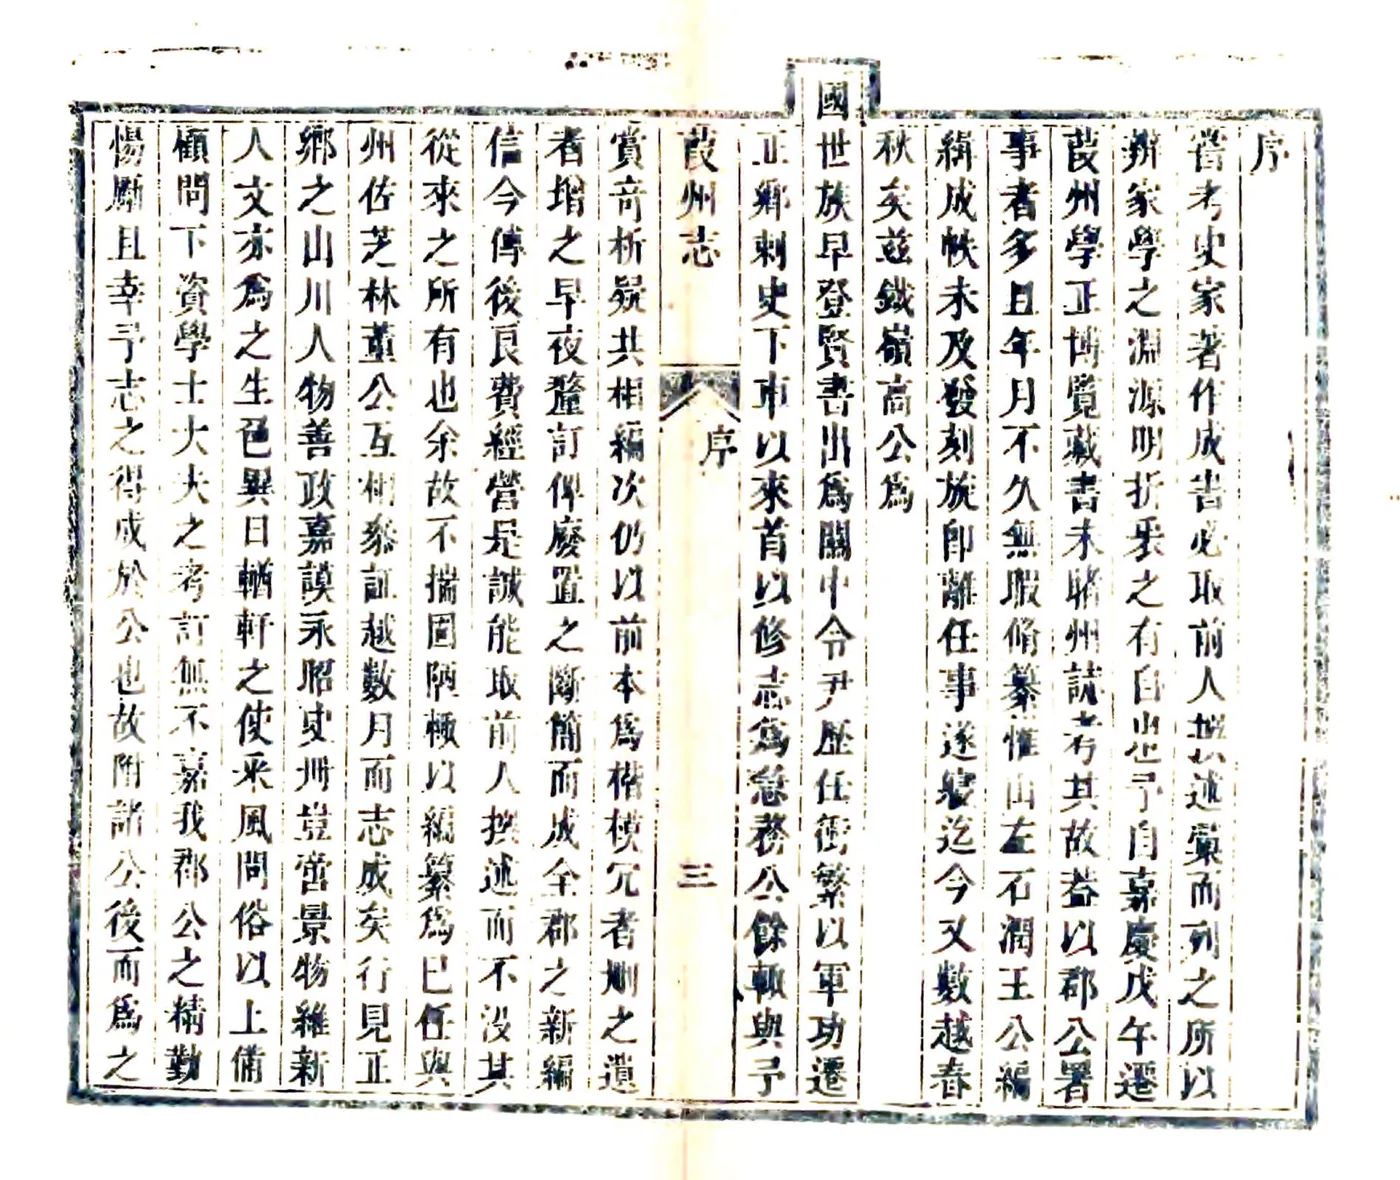 序
嘗考史家著作成書必取前人撰述彙而列之所以
辨家學之淵源明折衷之有自也予自嘉慶戊午遷
葭州學正博覽藏書未睹州誌考其故葢以郡公署
事者多且年月不久無暇脩纂惟山左石潤王公編
緝成帙未及發刻旋卽離任事遂寢迄今又數越春
秋矣茲鐵嶺高公爲
國世族早登賢書出爲關中令尹歷任衝繁以軍功遷
正鄉刺史下車以來首以修志爲急務公餘輙與予
葭州志
序
三
賞竒析疑共相編次仍以前本爲楷模冗者刪之遺
者增之早夜釐訂俾廢置之斷簡而成全郡之新編
信今傳後良費經營是誠能取前人撰述而不没其
從來之所有也余故不揣固陋輙以編纂爲已任與
州佐芝林董公互相叅証越數月而志成矣行見正
鄉之山川人物善政嘉謨永昭史冊豈啻景物維新
人文亦爲之生色異日輶軒之使采風問俗以上備
顧問下資學士大夫之考訂無不嘉我郡公之精勤
惕勵且幸予志之得成於公也故附諸公後而爲之